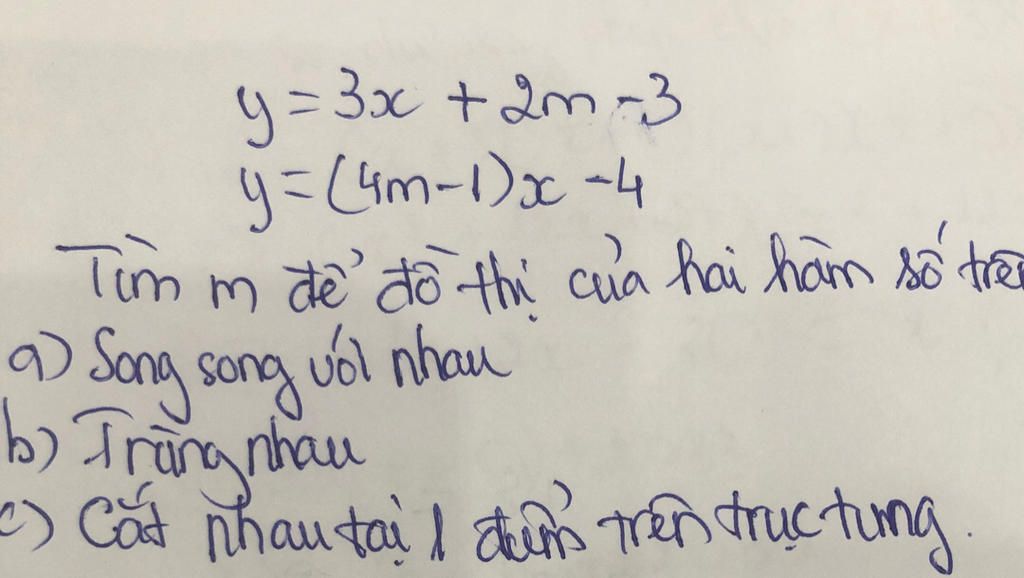 y = 3x + 2m - 3
y = (4m - 1)x - 4
Tìm m để đồ thị của hai hàm số trên
a) Song song với nhau
b) Trùng nhau
c) Cắt nhau tại 1 điểm trên trục tung.